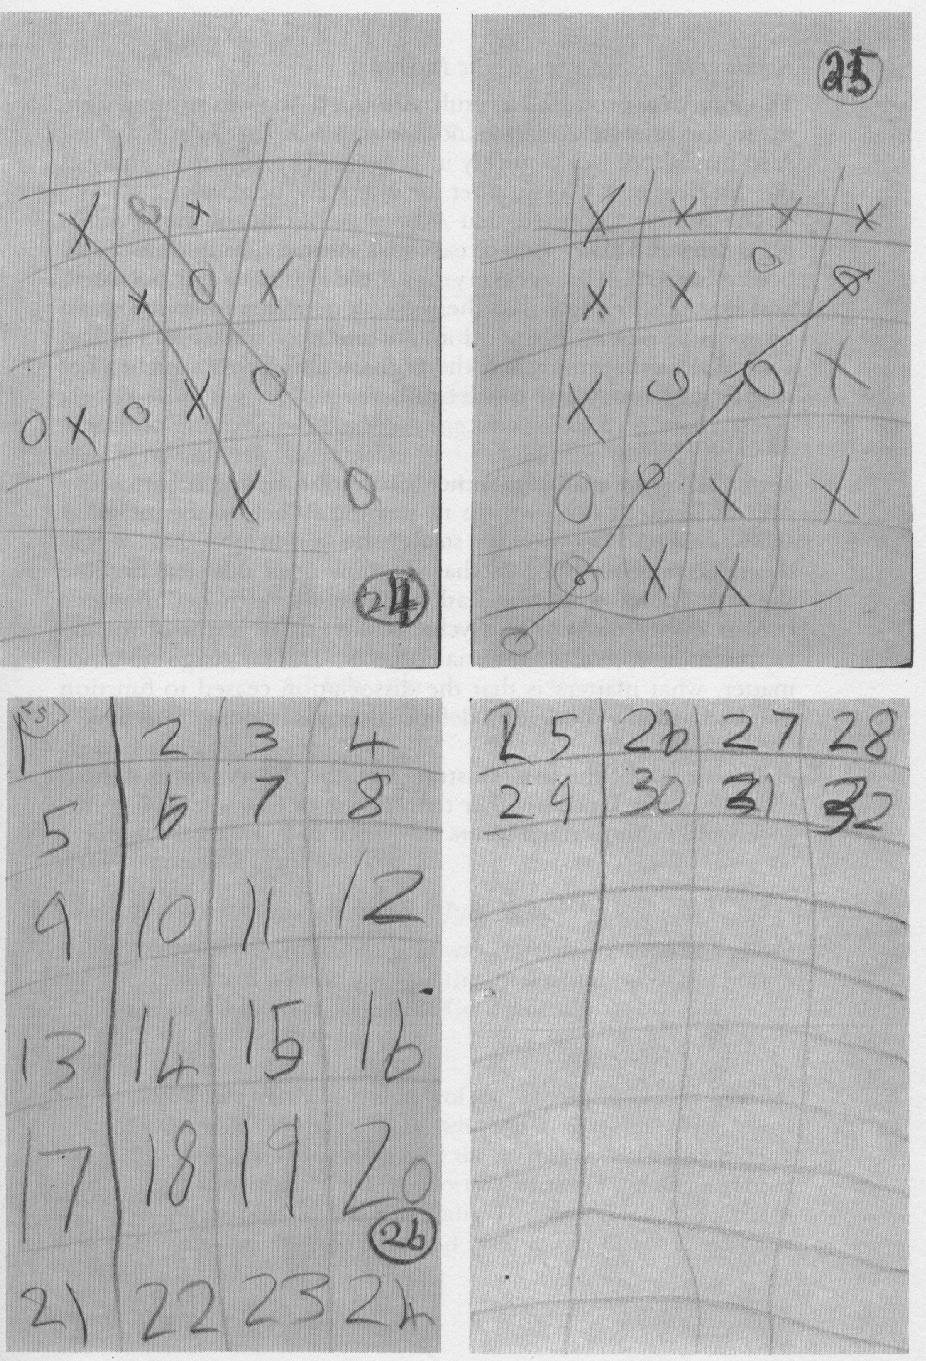 X O X
X O X
O X O X O
X O
24
25
X X X X
O
X X O
X O O X
O O X X
O X X
O
1 2 3 4
5 6 7 8
9 10 11 12
13 14 15 16
17 18 19 20
26
21 22 23 24
25 26 27 28
29 30 31 32